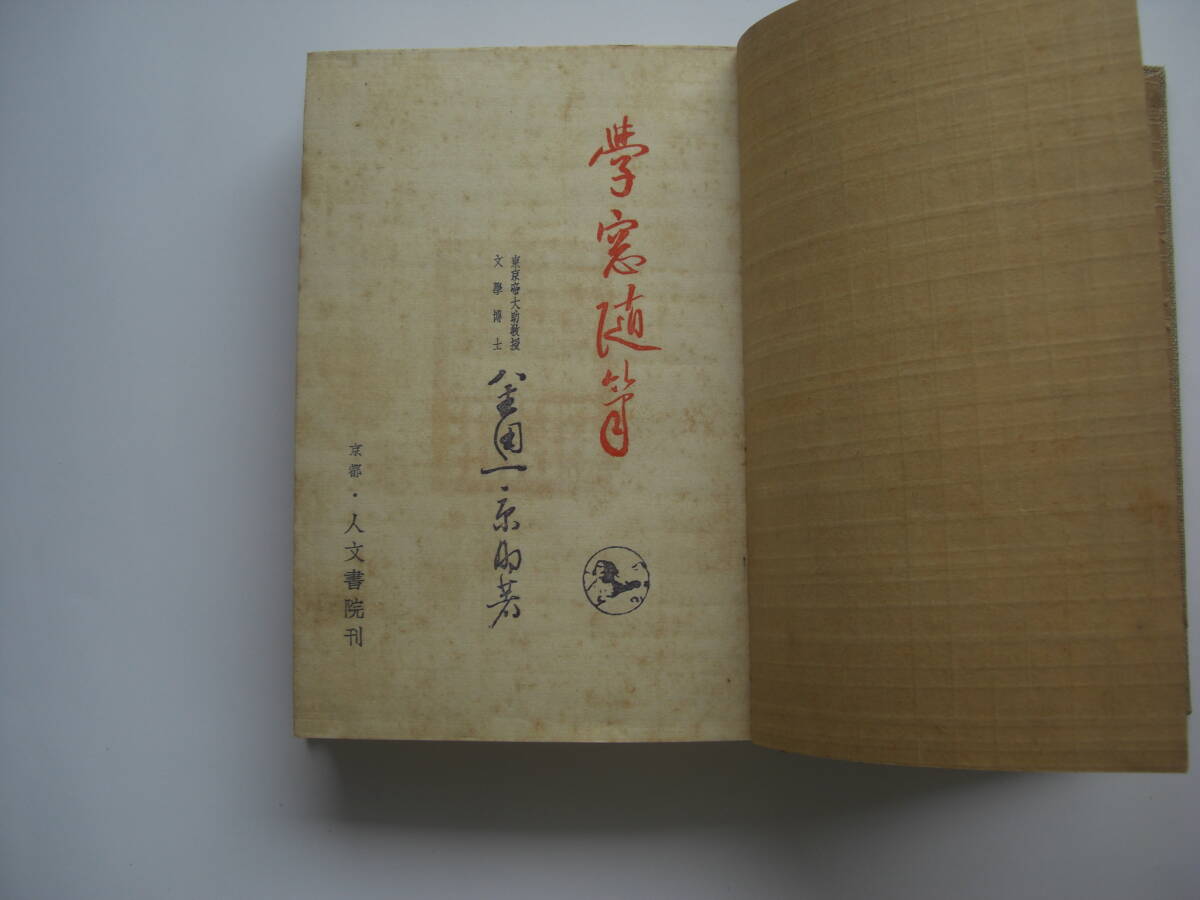 學窓随筆
東京帝大助教授
文學博士
金田一京助著
京都・人文書院刊